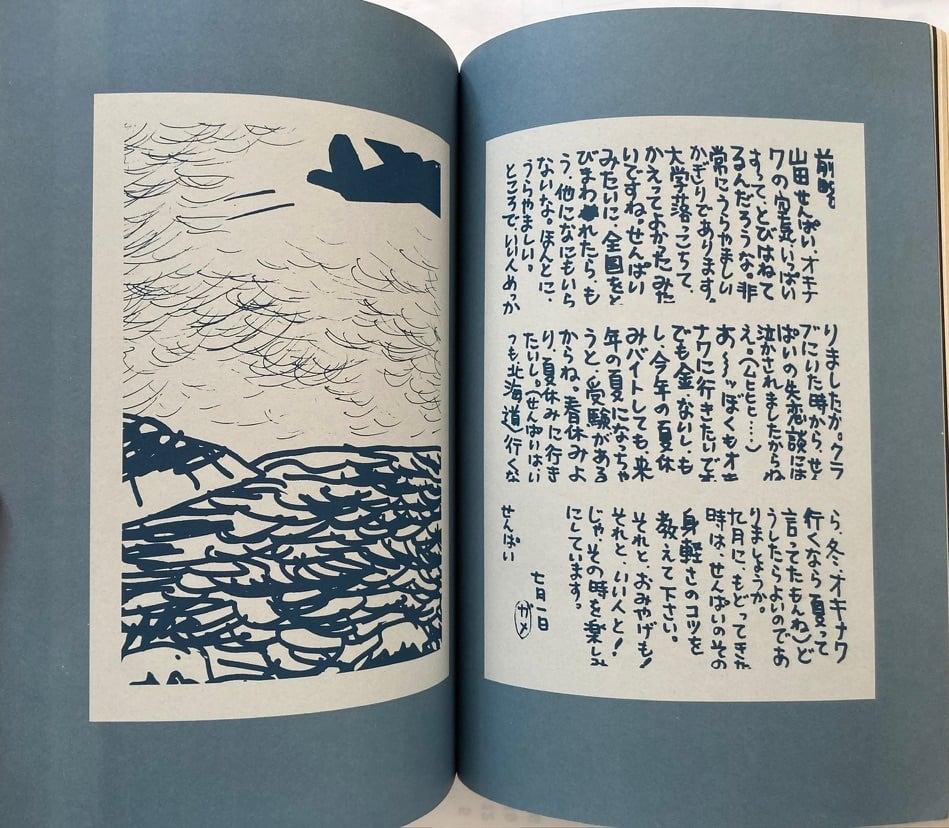 前略
山田せんぱい、オキナ
ワの空気いっぱい
すって、とびはねて
るんだろうな。非
常にうらやましい
かぎりであります。
大学落っこちて、
かえってよかったみた
いですね。せんぱい
みたいに、全国をと
びまわれたらも
う、他になにもいら
ないな。ほんとに、
うらやましい。
ところで、いい人めっか
りましたか。クラ
ブにいた時から、せん
ぱいの失恋談には
泣かされましたからね
え。(ムヒヒヒ……)
あ〜〜ッぼくもオキ
ナワに行きたいです
でも金、ないし、も
し、今年の夏休
みバイトしても、来
年の夏になっちゃ
うと、受験がある
からね。春休みよ
り、夏休みに行き
たいし。(せんぱいは、い
つも北海道行くな
ら、冬、オキナワ
行くなら夏って
言ってたもんね)ど
うしたらよいのであ
りましょうか。
九月に、もどってきた
時は、せんぱいのその
身軽さのコツを
教えて下さい。
それと、おみやげも!
それと、いい人と!
じゃ、その時を楽しみ
にしています。
七月一日
カメ
せんぱい